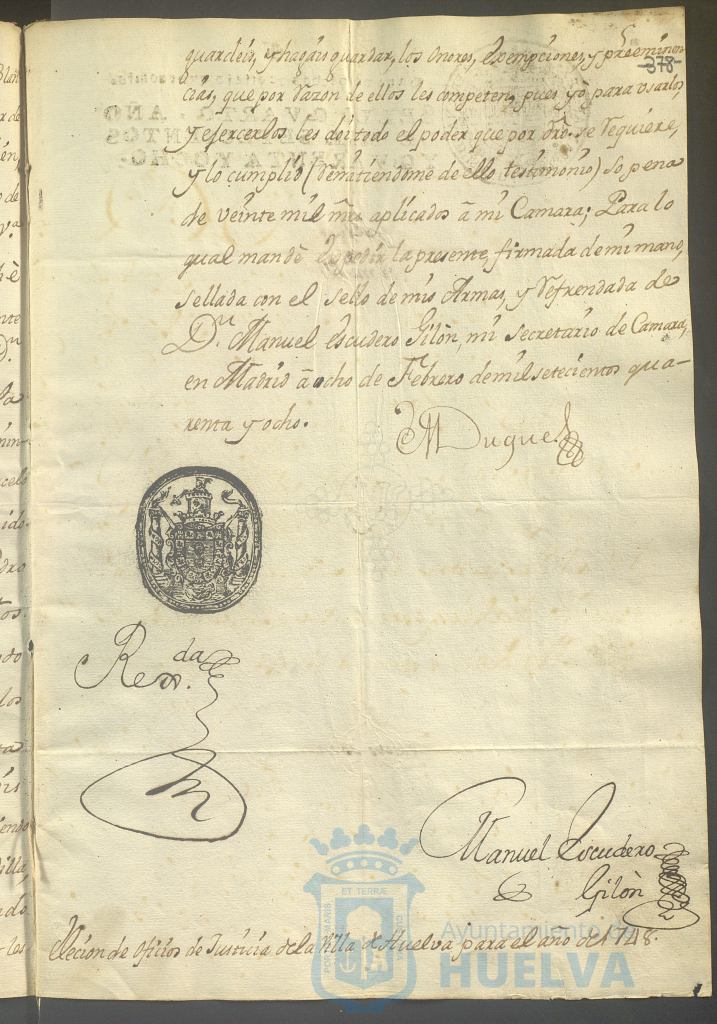 guardeis, y hagais guardar, los onores, exempciones, y preeminen
-378-
cias, que por razon de ellos les competen, pues yò para usarlos,
y ejercerlos les doi todo el poder que por dro. se requiere,
y lo cumplid (remitiendome de ello testimonio) so pena
de veinte mil mrs aplicados à mi Camara; Para lo
qual mandè expedir la presente, firmada de mi mano,
sellada con el sello de mis Armas, y refrendada de
Dn. Manuel Escudero Gilòn, mi Secretario de Camara,
en Madrid à ocho de Febrero de mil setecientos qua-
renta y ocho.
El Duque
Rexda.
Manuel Escudero
Gilòn
Elecion de oficios de Justicia de la Villa de Huelva para el año de 1748.
ET TERRÆ
Ayuntamiento de
HUELVA